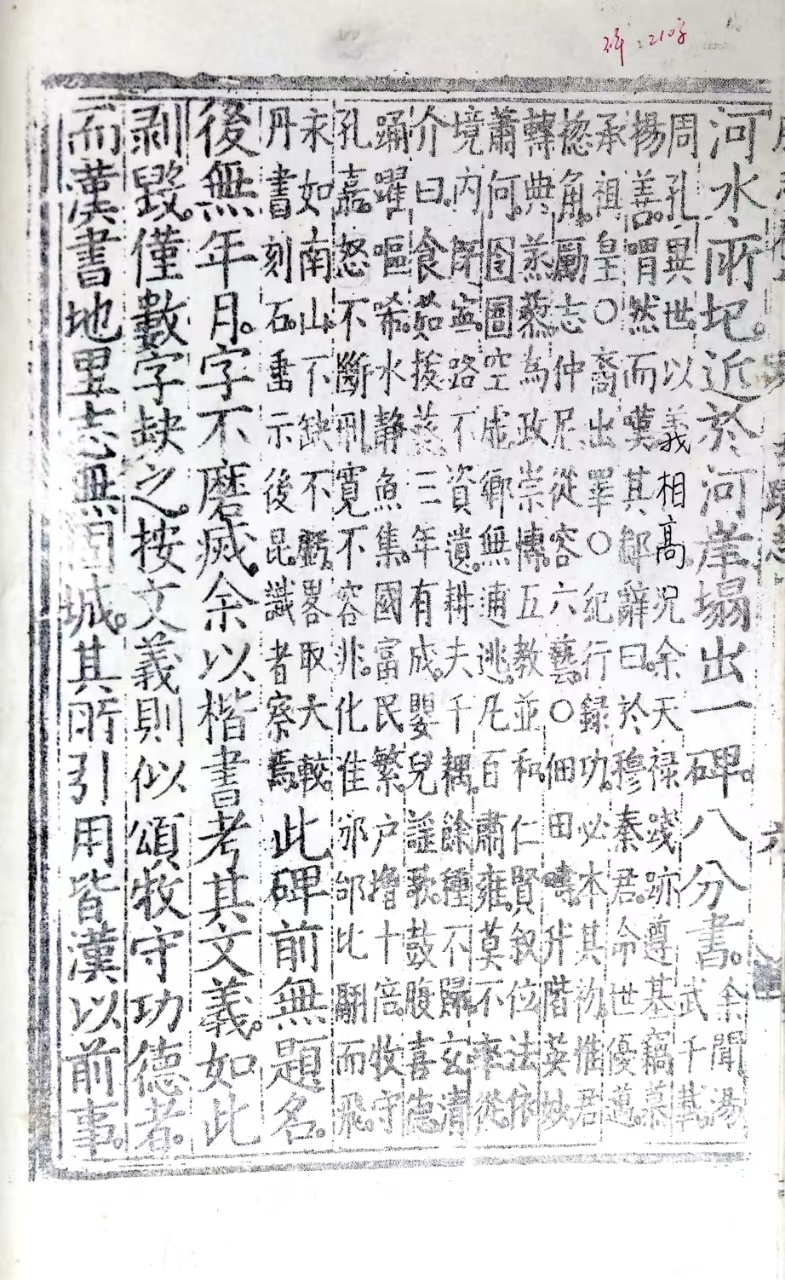 碑:210字
河水所圮。近於河崖塌出一碑。八分書。余聞湯
武千其
周孔異世。以義相高。况余天禄。踐跡遵基。竊慕
揚善。喟然而嘆。其鄰辭曰。於穆秦君。命世優邁。
承祖皇〇裔出罩〇紀行録功。必本其初。惟君
揔角。勵志仲尼。從容六藝。〇佃田疇。升階英妙。
轉典蒸藜。為政崇博。五教並和。仁賢叙位。法依
蕭何。囹圄空虚。鄉無逋逃。凡百肅雍。莫不率從。
境内既寍。路不資遺。耕夫千耦。餘種不歸。玄清
介曰。食茹拔葵。三年有成。嬰兒謡歌。鼓腹喜德
踊躍嘔唏。水静魚集。國富民繁。户增十倍。牧守
孔嘉。怒不斷刑。寛不容非。化准邠邰。比翮而飛。
永如南山。不缺不虧。畧取大較。
丹書刻石。垂示後昆。識者察焉。此碑前無題名。
後無年月。字不磨滅。余以楷書考其文義。如此
剥毀。僅數字缺之。按文義則似頌牧守功德者。
而漢書地里志無固城。其所引用皆漢以前事。